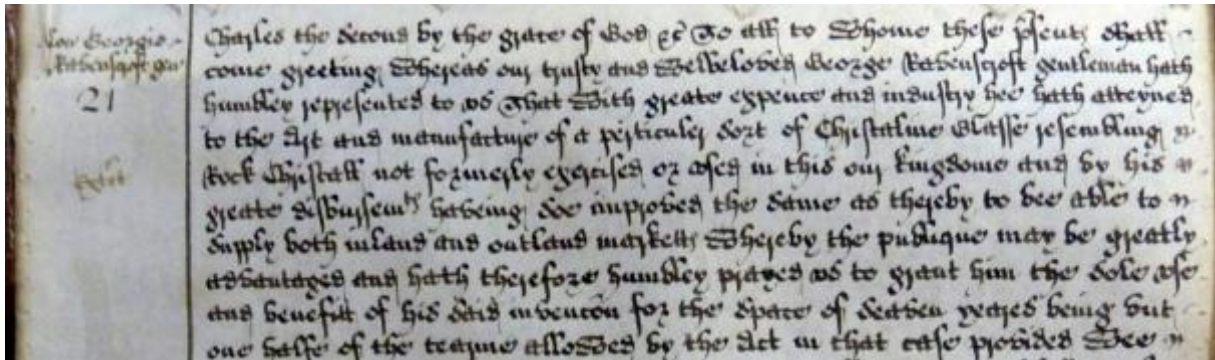 Con Georgio
Ravenscroft gen
21
Charles the second by the grace of God &c To all to Whome these p̃sents shall
come greeting Whereas our trusty and Welbeloved George Ravenscroft gentleman hath
humbley represented to us That With greate expence and industry hee hath atteyned
to the Art and manufacture of a perticuler sort of Christaline Glasse resembling
Rock Christall not formerly exercised or used in this our kingdome and by his
greate disbursemts haveing soe improved the same as thereby to bee able to
supply both inland and outland marketts Whereby the publique may be greatly
advantaged and hath therefore humbley prayed us to grant him the sole use
and benefitt of his said invencon for the space of seaven yeares being but
one halfe of the tearme alloWed by the Act in that case provided Wee